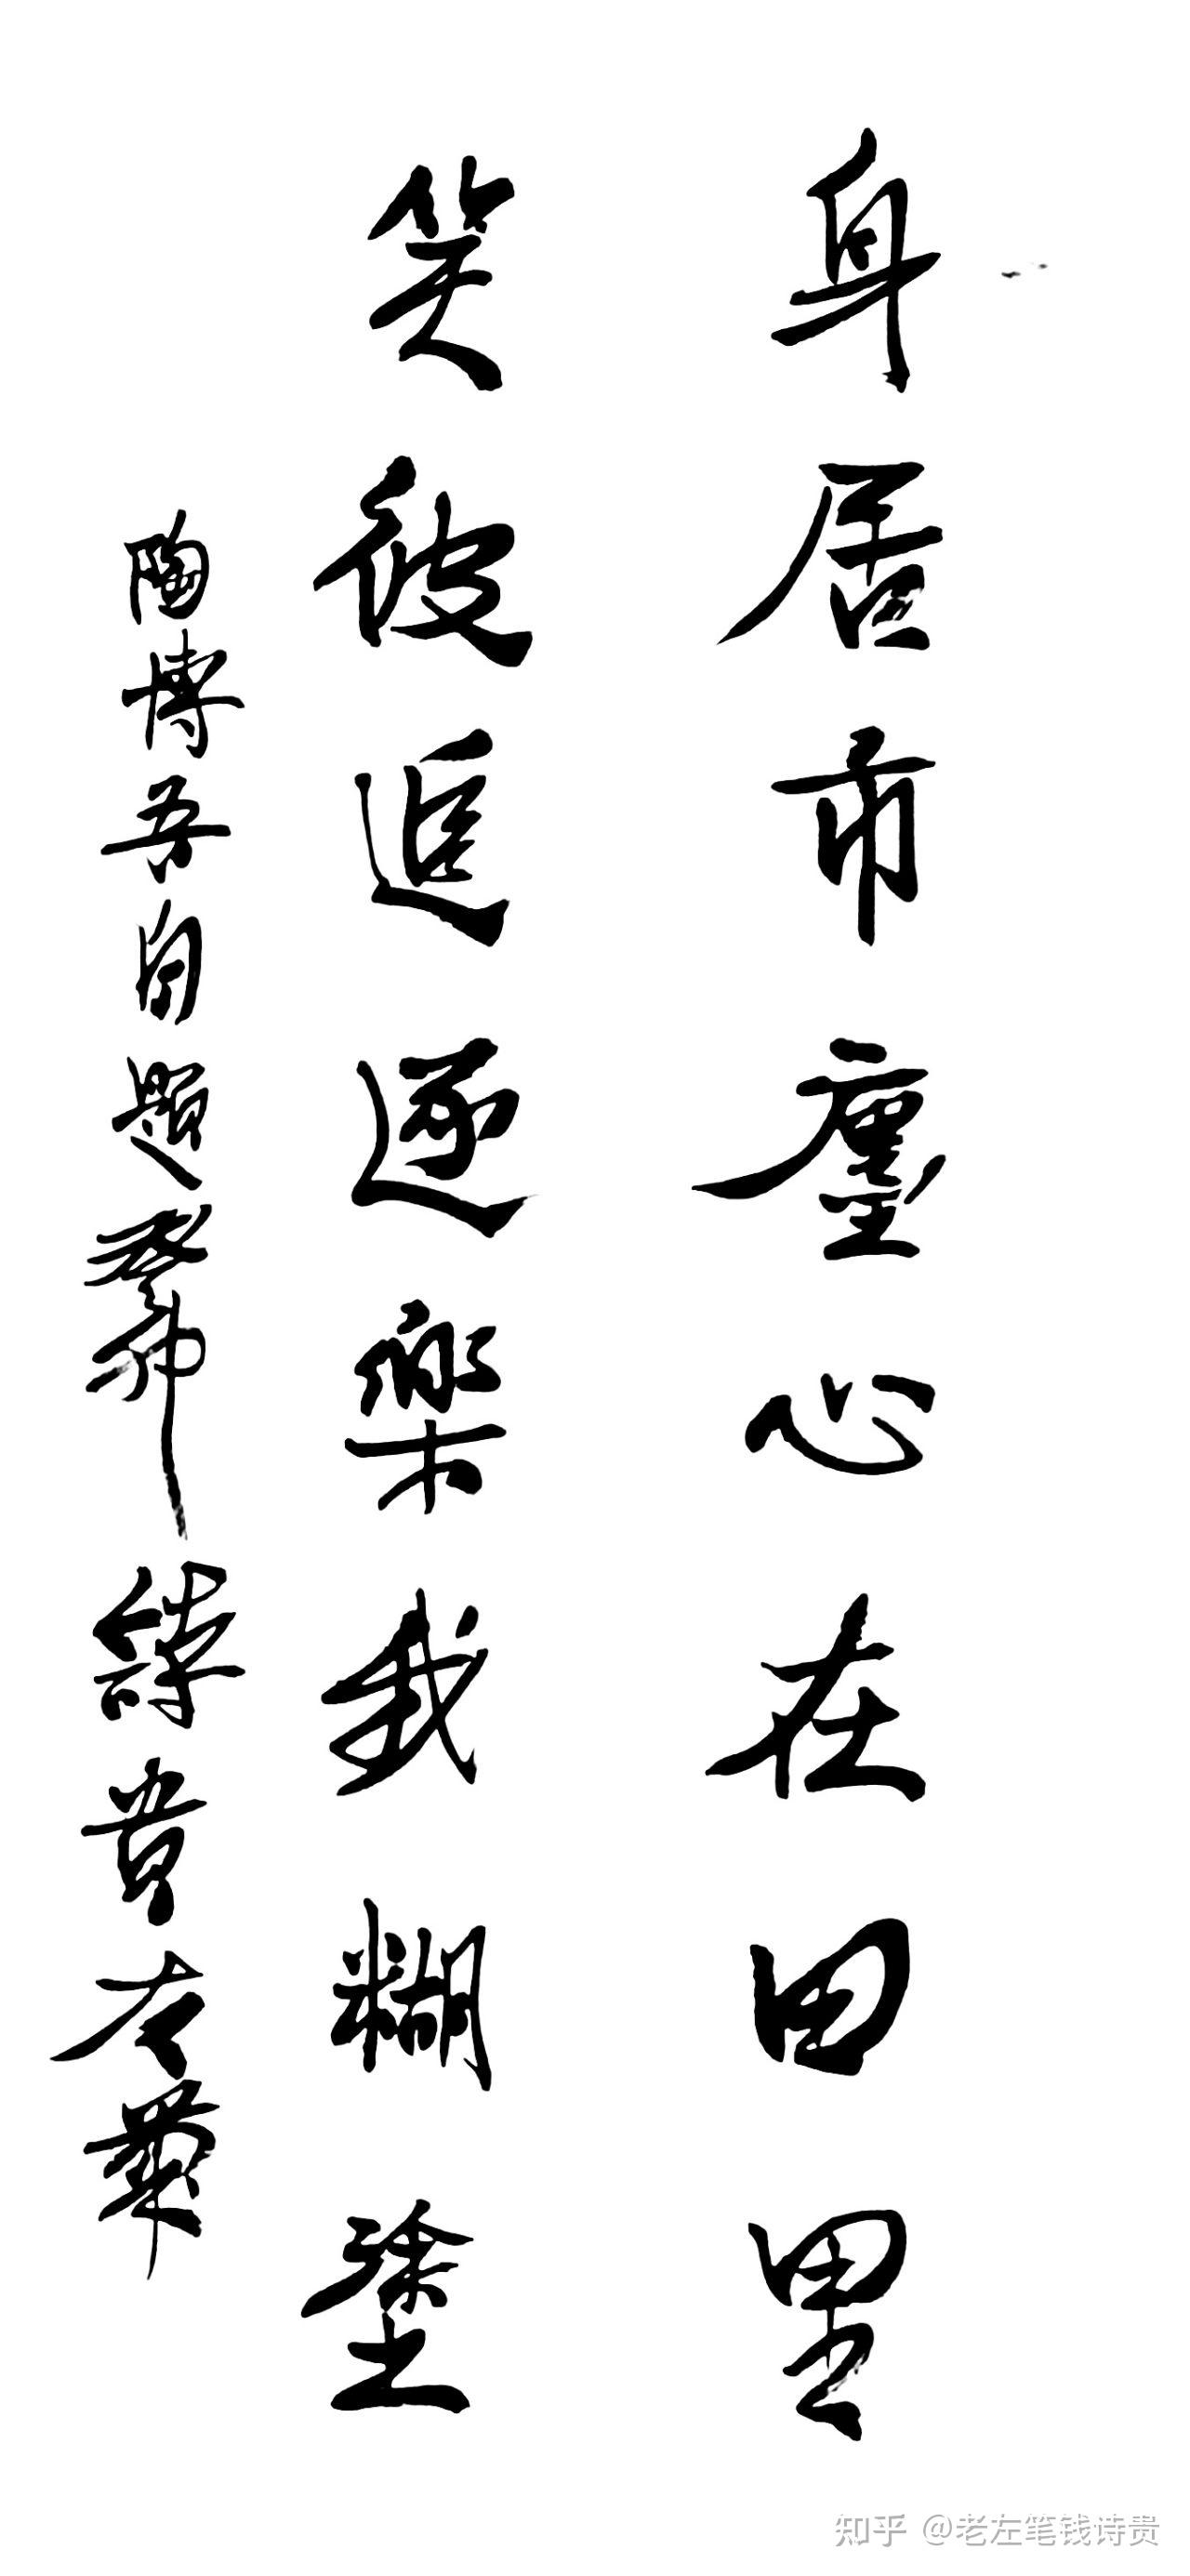 身居市廛心在田里
笑彼追逐樂我糊塗
陶博吾自題癸卯詩貴左筆
知乎 @老左笔钱诗贵